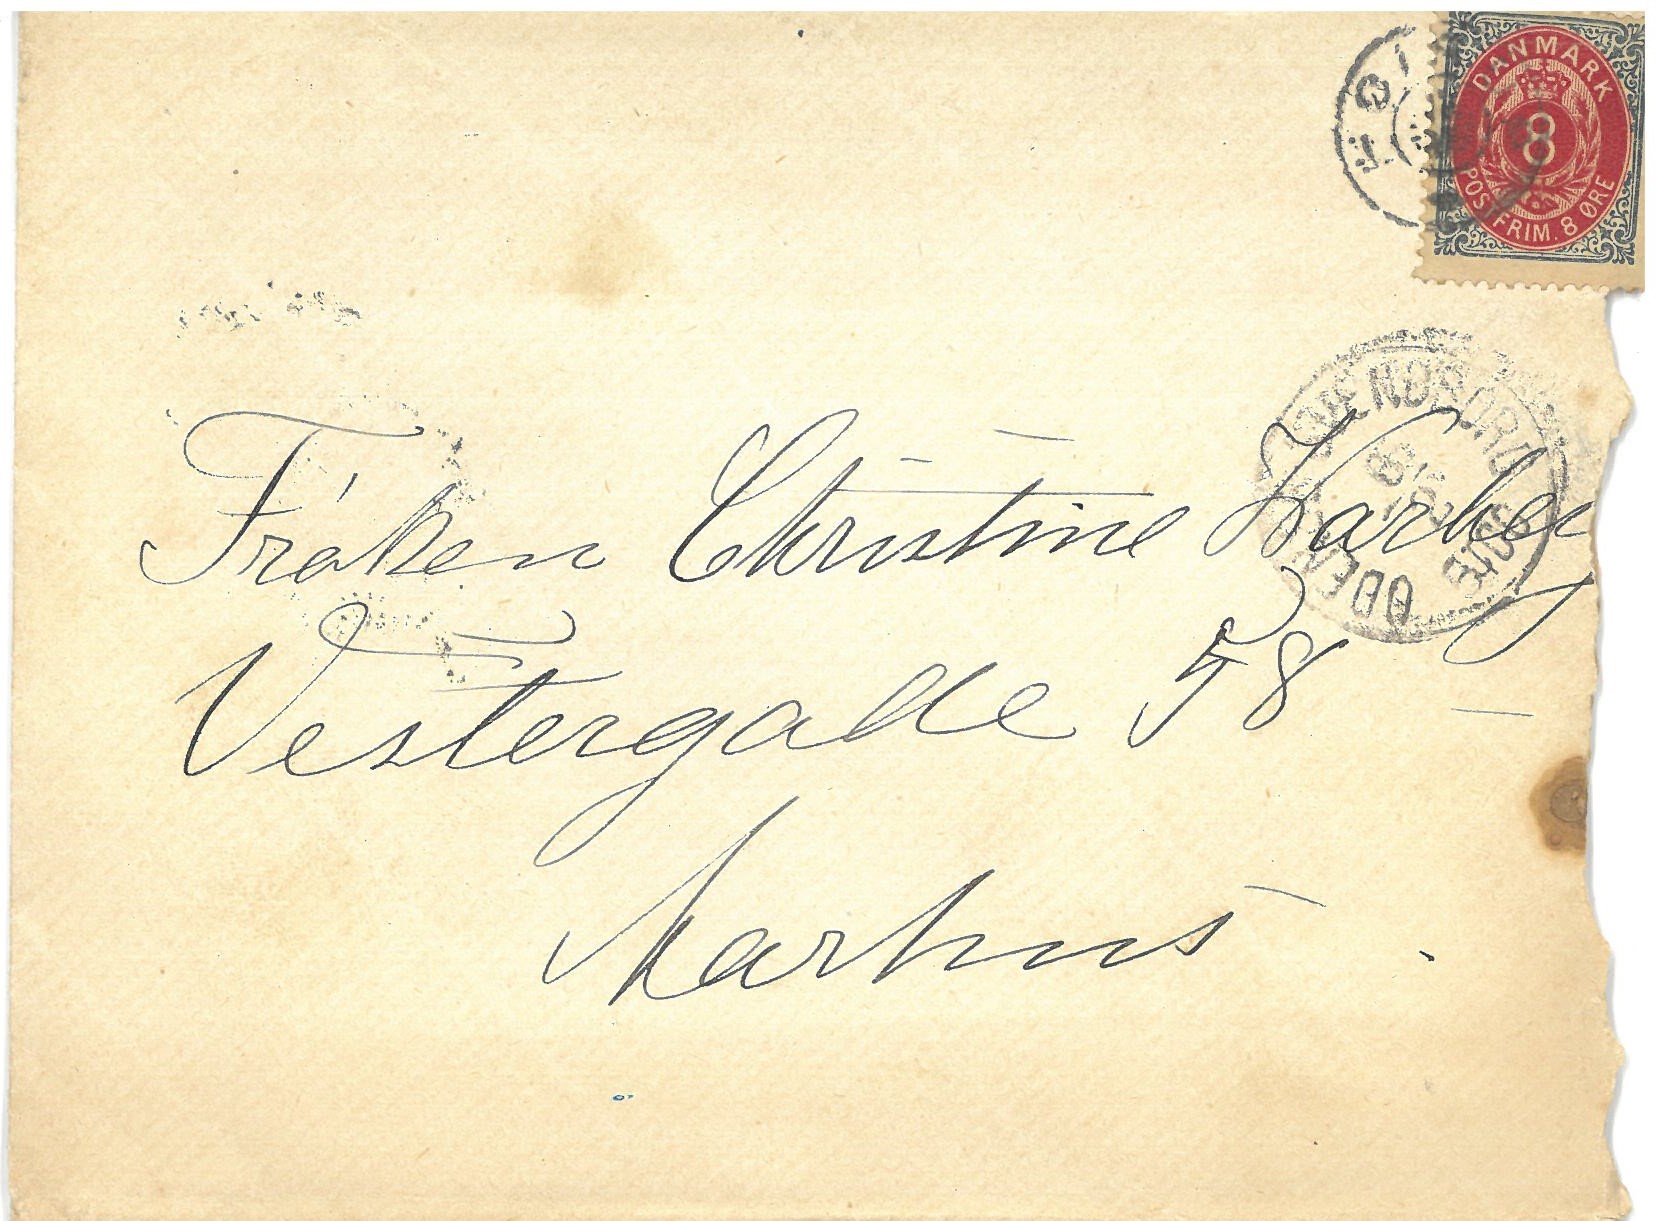 DANMARK
8
POSTFRIM. 8 ØRE
Frøken Christine
Vestergade 58
Aarhus.